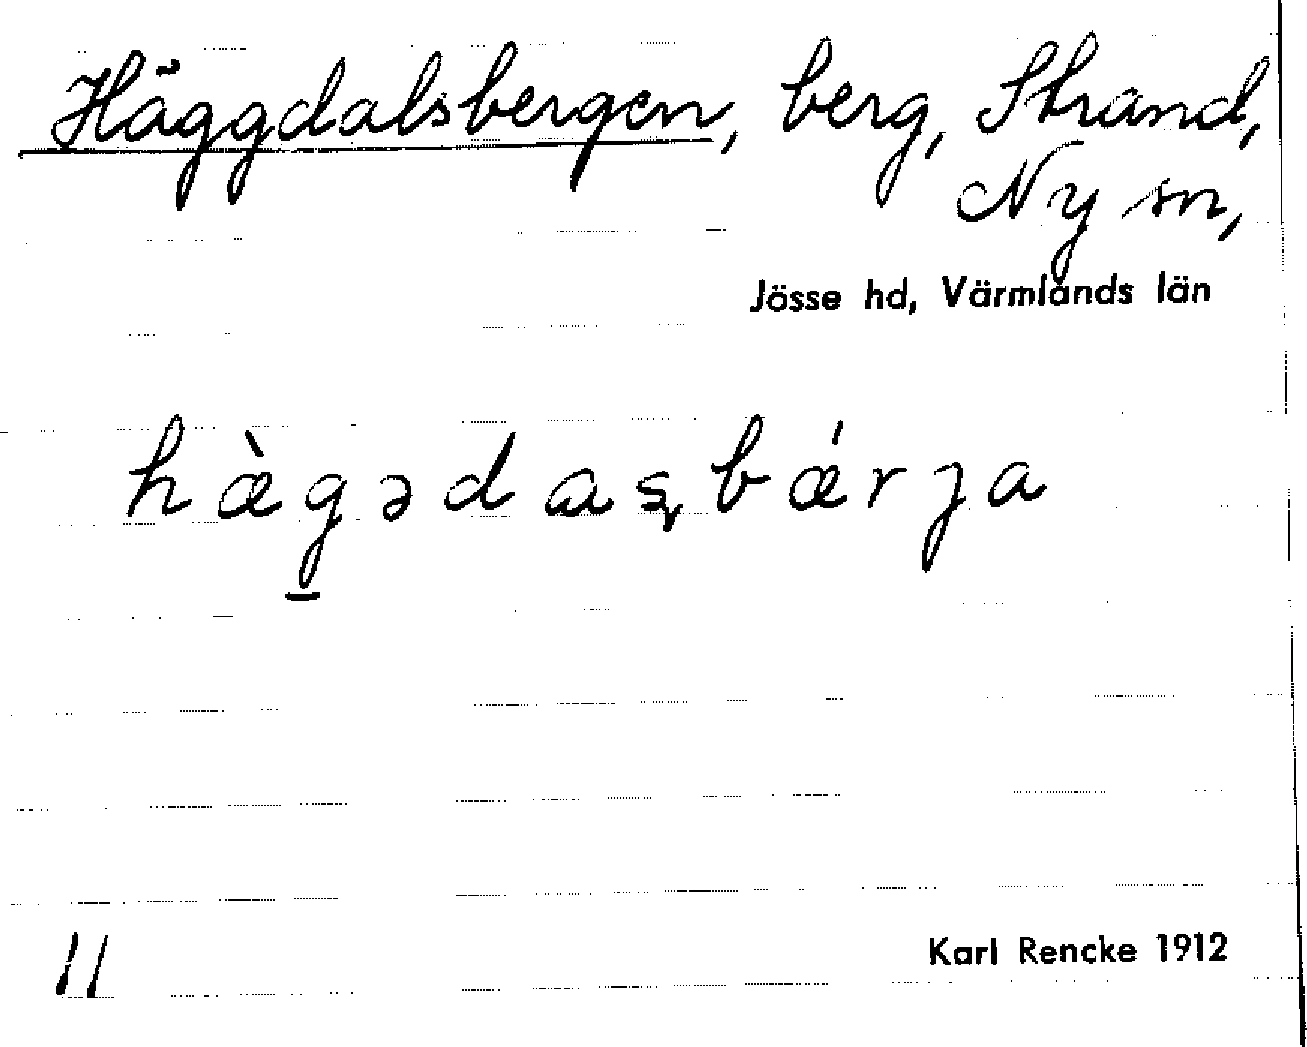 Häggdalsbergen, berg, Strand,
Ny sn,
Jösse hd, Värmlands län
hæ̀g̱ədasbǽrja
11
Karl Rencke 1912